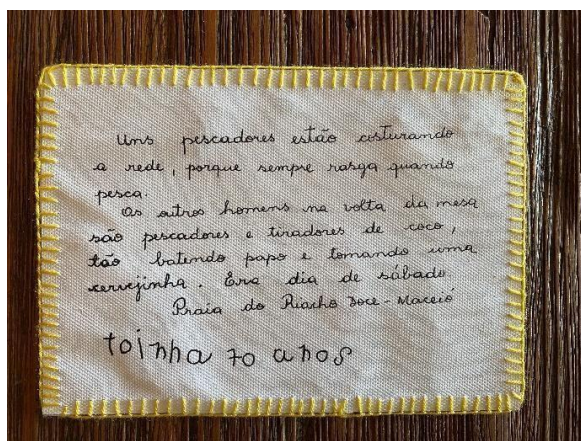 Uns pescadores estão costurando
a rede, porque sempre rasga quando
pesca.
Os outros homens na volta da mesa
são pescadores e tiradores de coco,
tão batendo papo e tomando uma
cervejinha. Era dia de sábado.
Praia do Riacho Doce - Maceió
toinha 70 anos